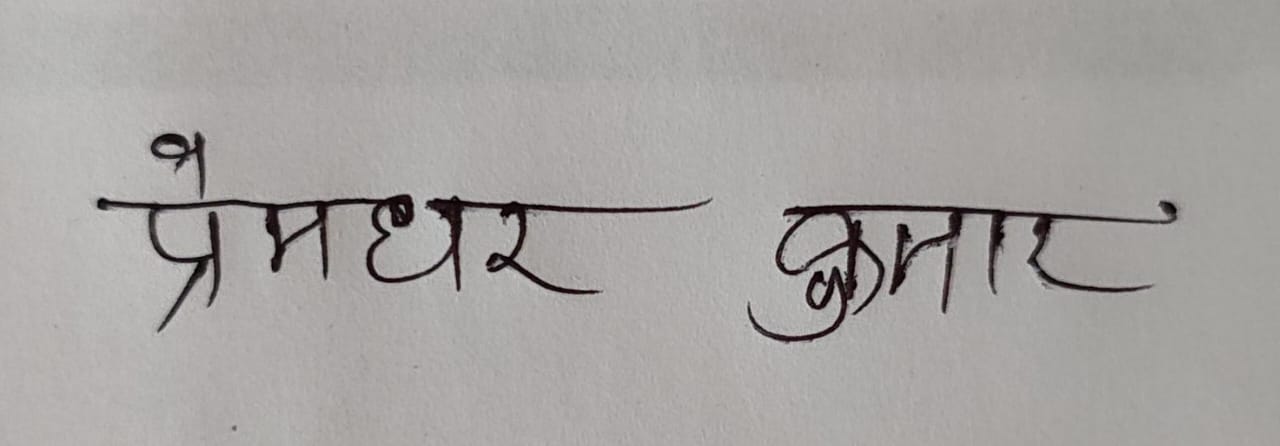 प्रेमधर कुमार